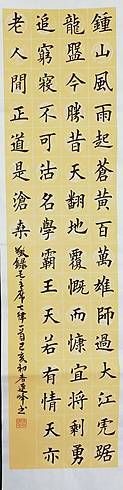 鍾山風雨起蒼黃百萬雄師過大江虎踞
龍盤今勝昔天翻地覆慨而慷宜將剩勇
追窮寇不可沽名學霸王天若有情天亦
老人間正道是滄桑
敬録毛主席七律一首己亥初